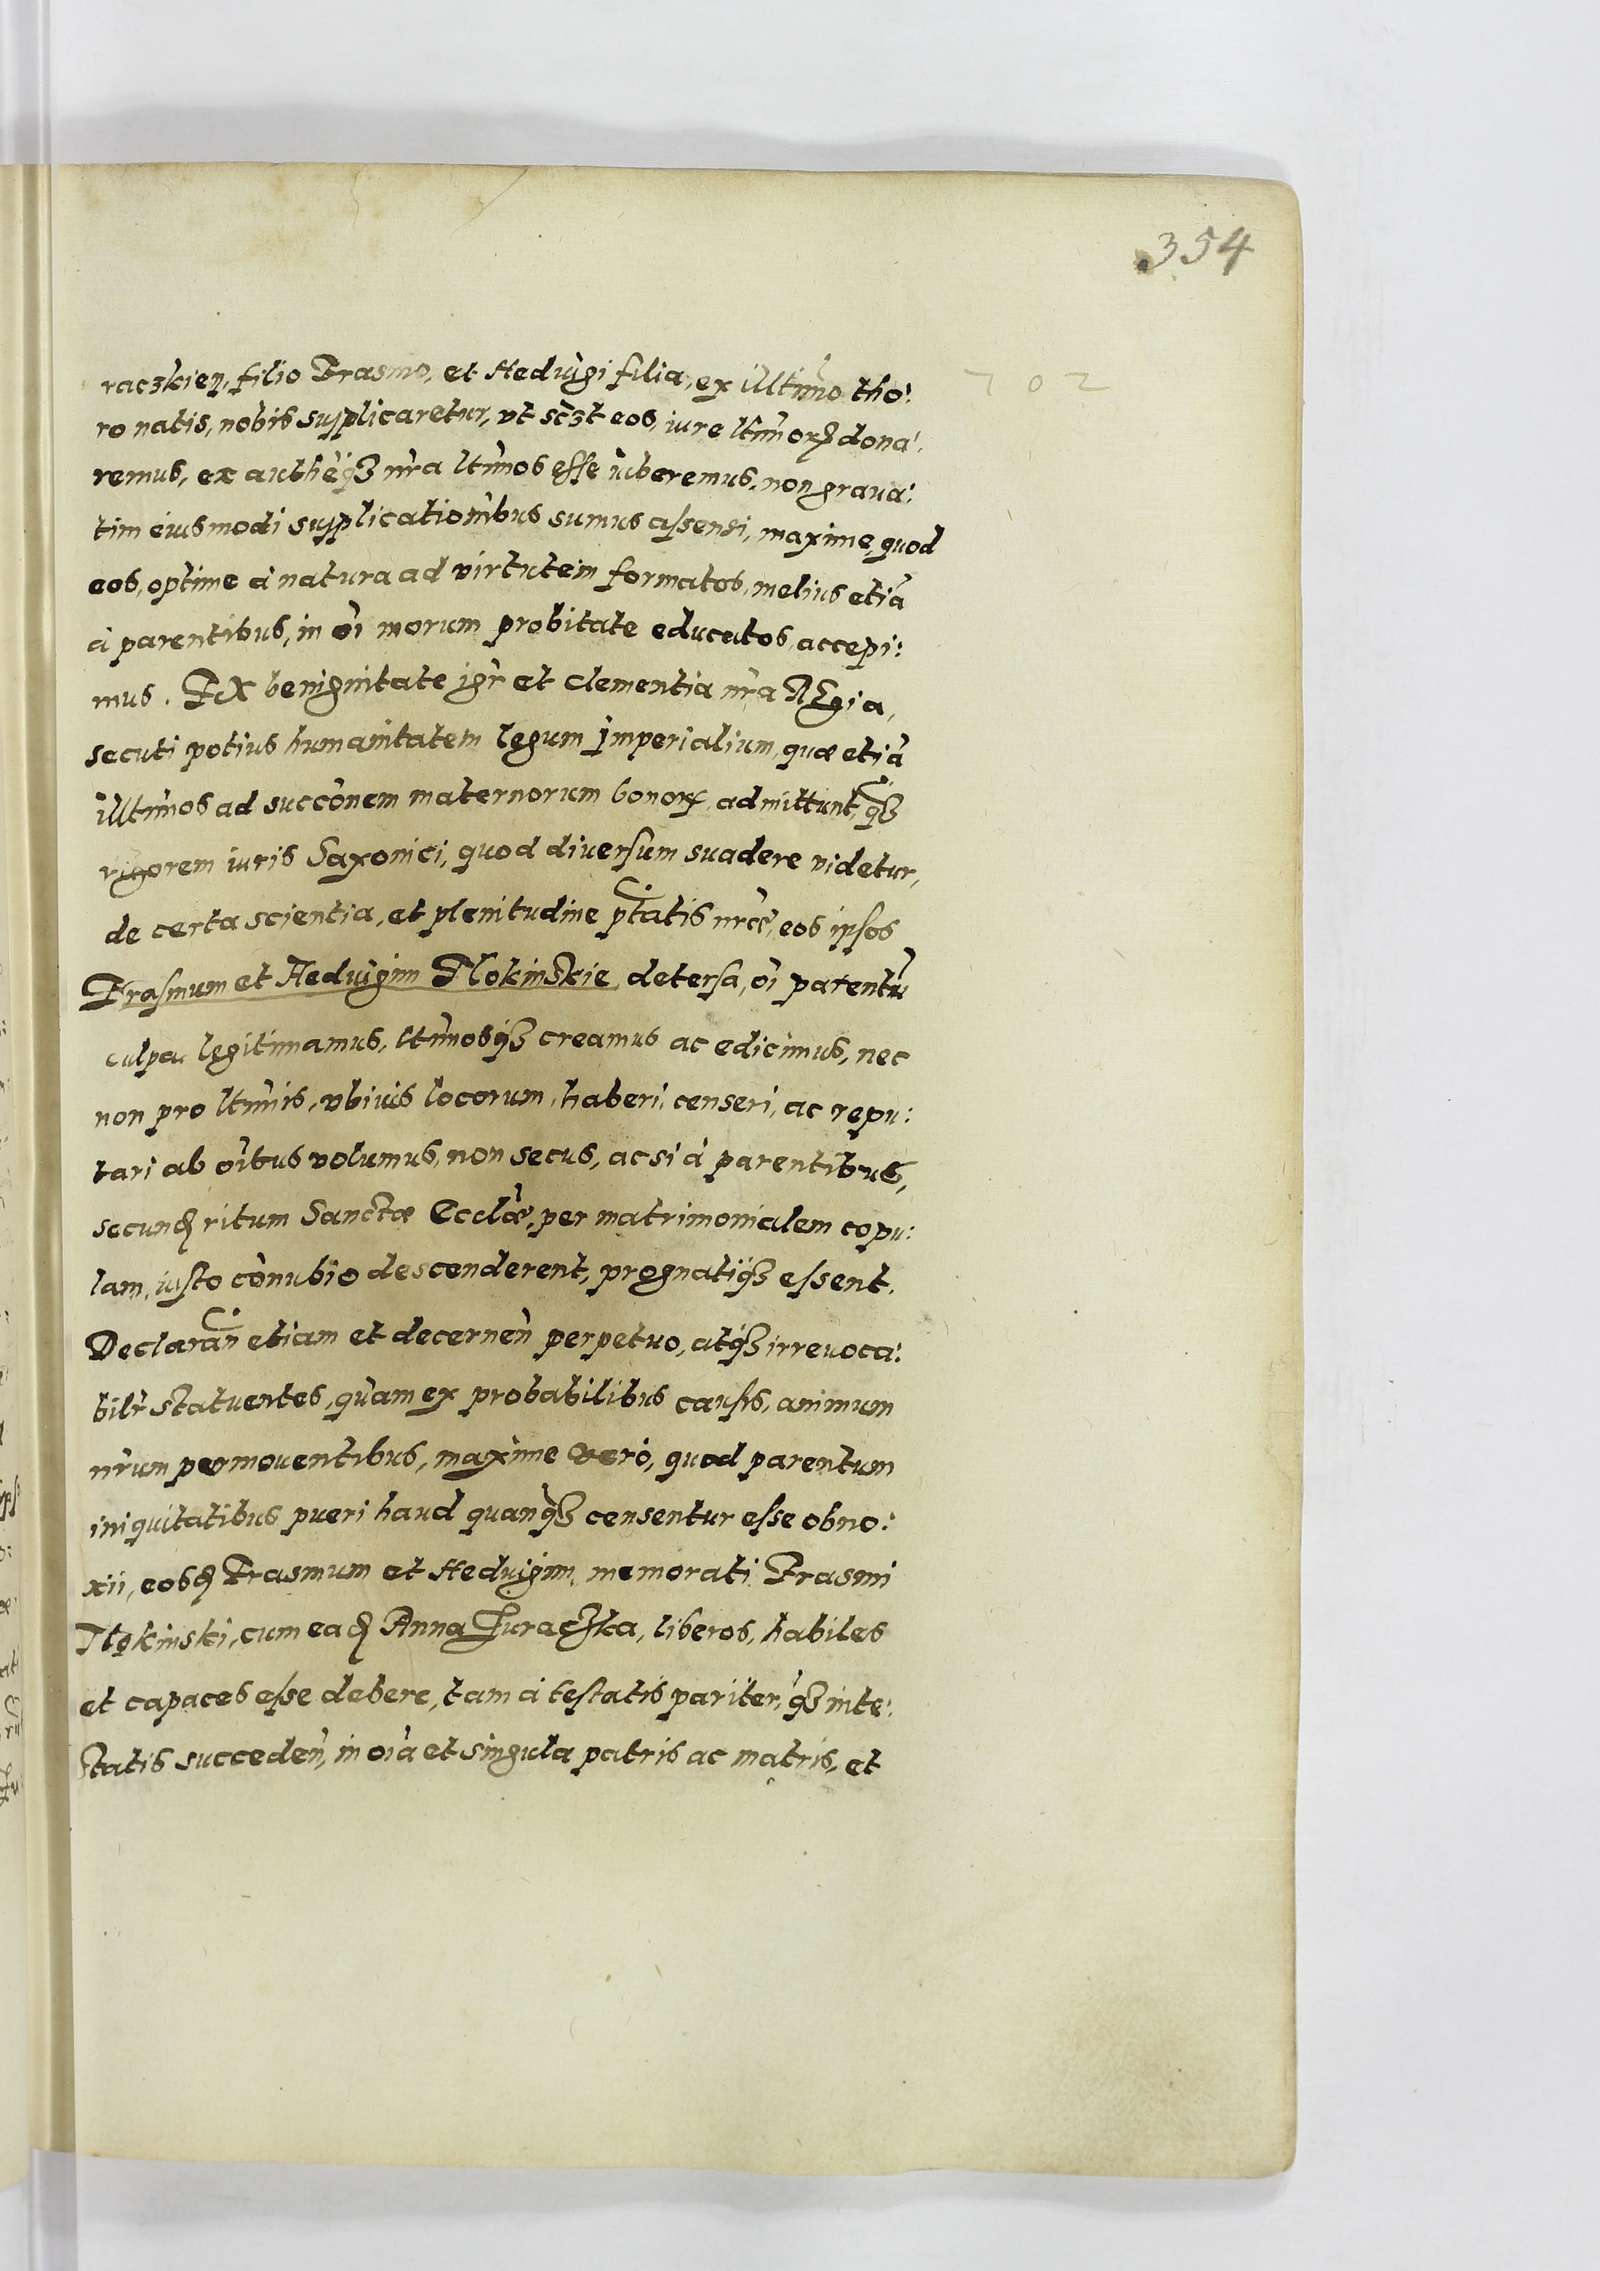 354
702
raczkien, filio Erasmo, et Heduigi filia, ex illtimo tho:
ro natis, nobis supplicaretur, vt sczt eos, iure ltimorꝝ dona:
remus, ex authẽqꝫ nr̃a ltimos esse iuberemus, non graua:
tim eiusmodi supplicationibus sumus assensi, maxime, quod
eos, optime à natura ad virtutem formatos, melius etiã
à parentibus, in oĩ morum probitate educatos, accepi:
mus. Ex benignitate igr̃ et clementia nr̃a Regia,
secuti potius humanitatem legum imperialium, quæ etiã
illtimos ad succõnem maternorum bonorꝝ admittunt, qꝫ
rigorem iuris Saxonici, quod diuersum suadere videtur,
de certa scientia, et plenitudine ptatis nr̃æ, eos ipsos
Erasmum et Heduigim Plokinskie, detersa, oĩ parentũ
culpa, legitimamus, ltimosqꝫ creamus ac edicimus, nec
non pro ltimis, vbiuis locorum, haberi, censeri, ac repu:
tari ab oĩbus volumus, non secus, ac si à parentibus,
secundum ritum Sanctæ Ecclæ, per matrimonialem copu:
lam, iusto cõnubio descenderent, prognatiqꝫ essent.
Declarañ etiam et decerneñ perpetuo, atqꝫ irreuoca:
bilr̃ statuentes, quam ex probabilibus causis, animum
nr̃um permouentibus, maxime vero, quod parentum
iniquitatibus pueri haud quanqꝫ censentur esse obno:
xii, eosdem Erasmum et Heduigim, memorati Erasmi
Plokinski, cum eadem Anna Juraczka, liberos, habiles
et capaces esse debere, tam à testatis pariter, qꝫ inte:
statis succedeñ, in oĩa et singula patris ac matris, et